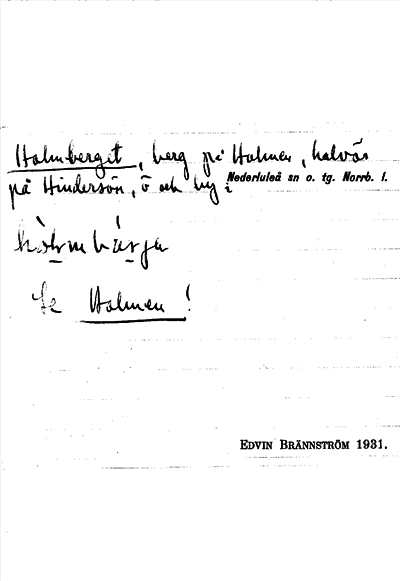 Holmberget, berg på Holmen, halvös
på Hindersön, ö och by i Nederluleå sn o. tg. Norrb. l.
Se Holmen!
EDVIN BRÄNNSTRÖM 1931.